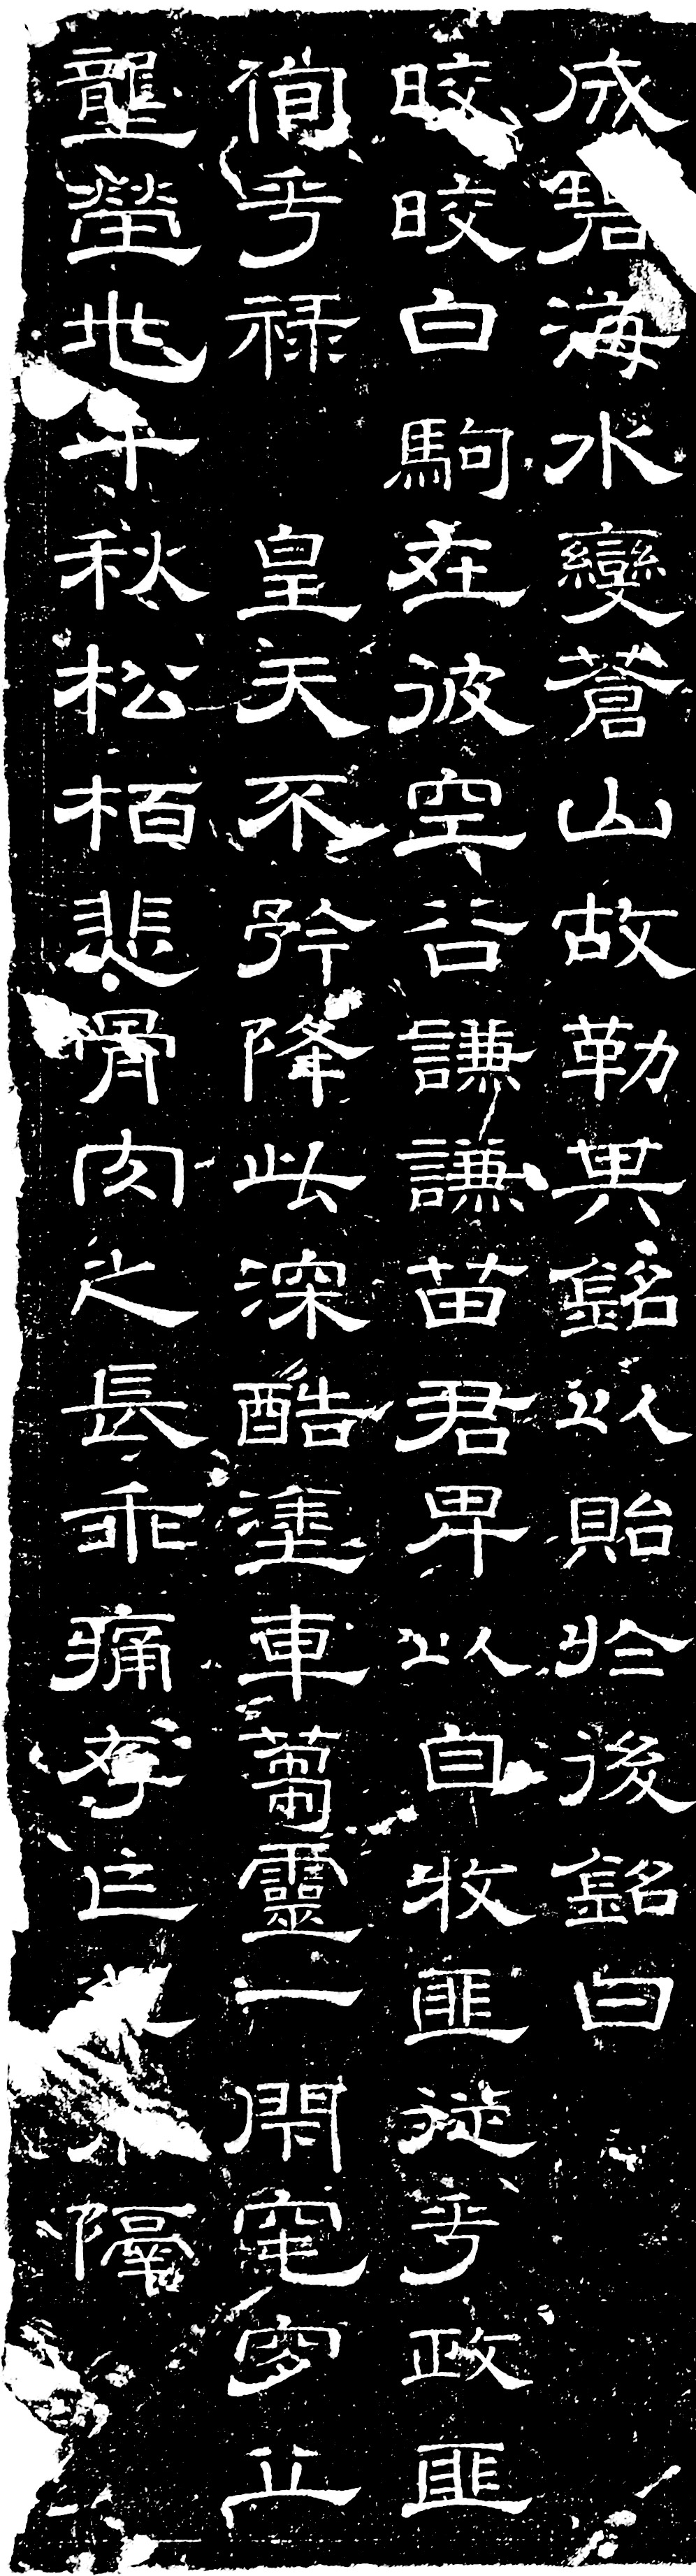 成碧海水變蒼山故勒其銘以貽於後銘曰
晈晈白駒在彼空谷謙謙苗君卑以自牧匪從乎政匪
徇乎祿 皇天不矜降此深酷塗車蒭靈一閇窀穸丘
壟塋地千秋松栢悲骨肉之長乖痛存亡隔